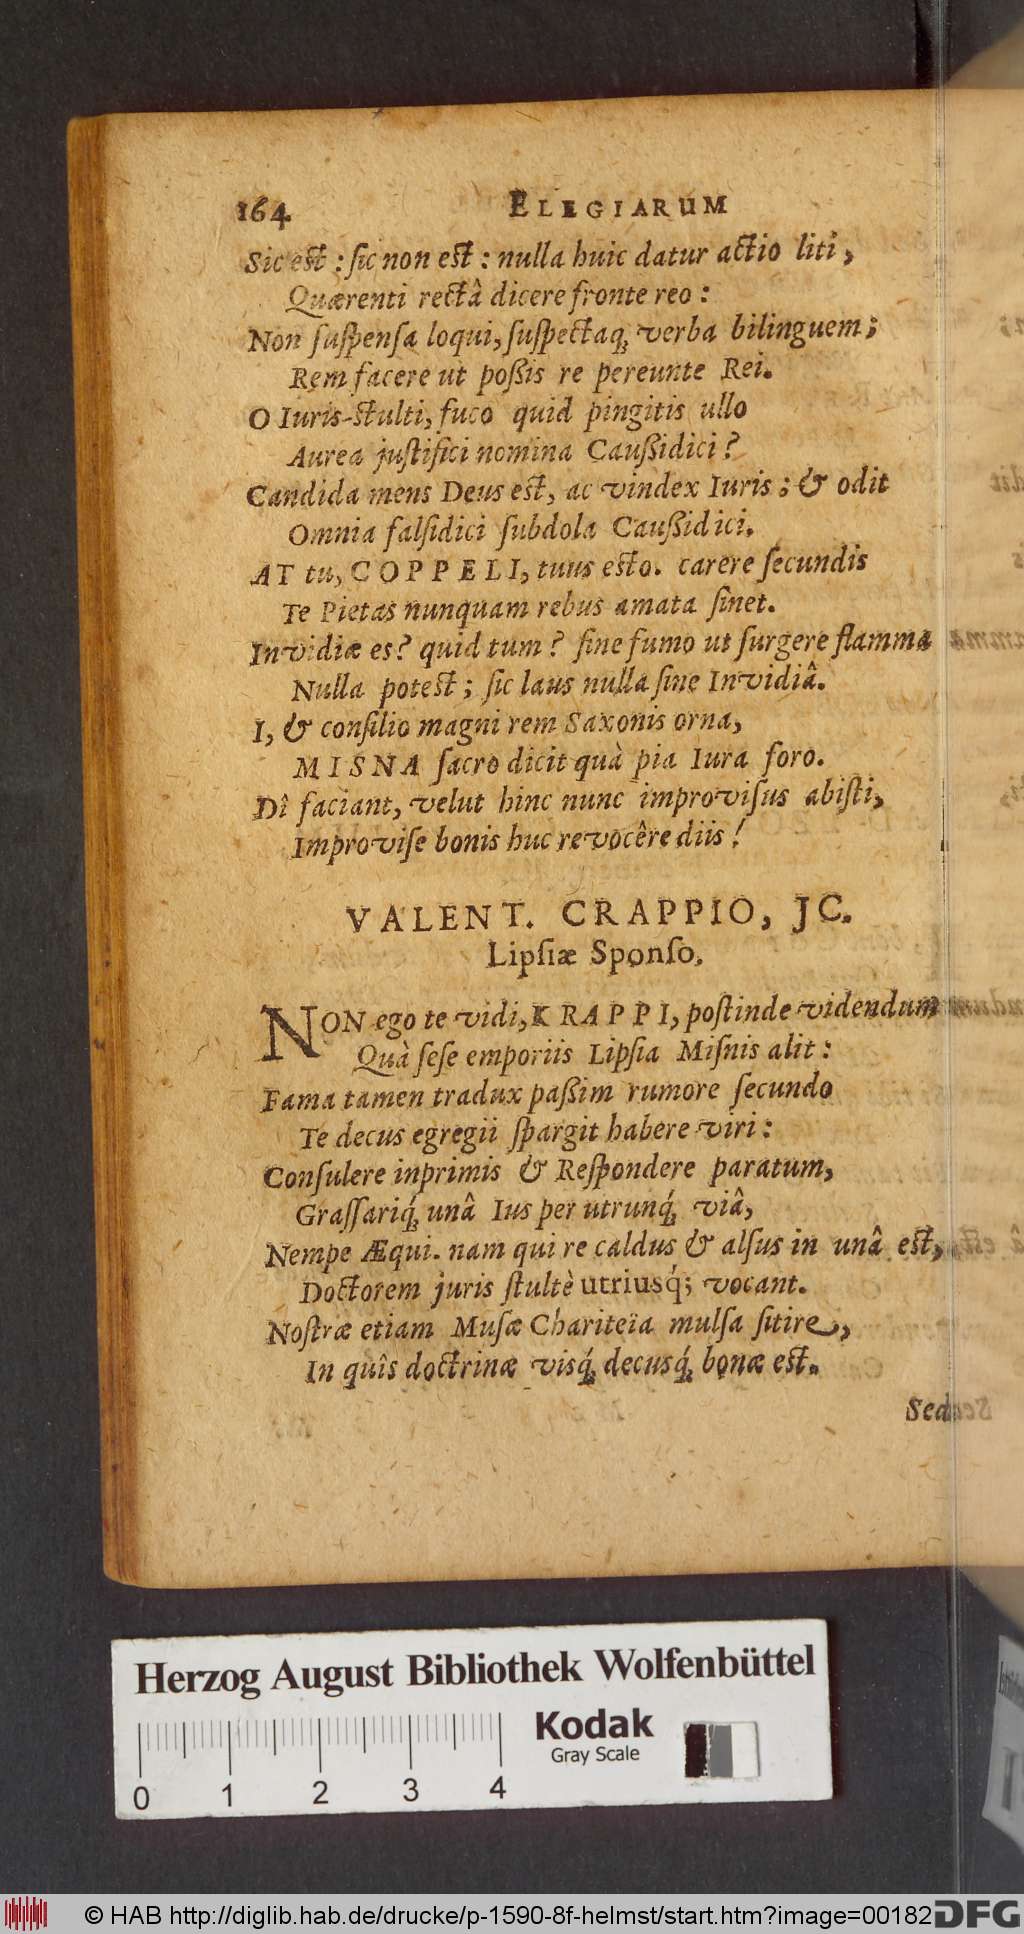 164 ELEGIARUM
Sic est : ſic non est : nulla huic datur actio liti,
Quærenti rectâ dicere fronte reo :
Non ſuſpenſa loqui, ſuſpectaq́; verba bilinguem;
Rem facere ut poßis re pereunte Rei.
O Iuris-ſtulti, fuco quid pingitis ullo
Aurea juſtifici nomina Caußidici ?
Candida mens Deus est, ac vindex Iuris ; & odit
Omnia falſidici ſubdola Caußidici.
AT tu, COPPELI, tuus esto. carere ſecundis
Te Pietas nunquam rebus amata ſinet.
Invidiæ es ? quid tum ? ſine fumo ut ſurgere flamma
Nulla potest ; ſic laus nulla ſine Invidiâ.
I, & conſilio magni rem Saxonis orna,
MISNA ſacro dicit quà pia Iura foro.
Dî faciant, velut hinc nunc improviſus abiſti,
Improviſe bonis huc revocêre diis !
VALENT. CRAPPIO, JC.
Lipſiæ Sponſo.
NON ego te vidi, KRAPPI, poſtinde videndum
Quà ſeſe emporiis Lipſia Miſnis alit :
Fama tamen tradux paßim rumore ſecundo
Te decus egregii ſpargit habere viri :
Conſulere inprimis & Reſpondere paratum,
Graſſariq́; unâ Ius per utrunq́; viâ,
Nempe Æqui. nam qui re caldus & alſus in unâ est,
Doctorem juris ſtultè utriusq́; vocant.
Noſtræ etiam Muſæ Chariteïa mulſa ſitire,
In quîs doctrinæ visq́; decusq́; bonæ est.
Sed
Herzog August Bibliothek Wolfenbüttel
Kodak
Gray Scale
0 1 2 3 4
© HAB http://diglib.hab.de/drucke/p-1590-8f-helmst/start.htm?image=00182
DFG